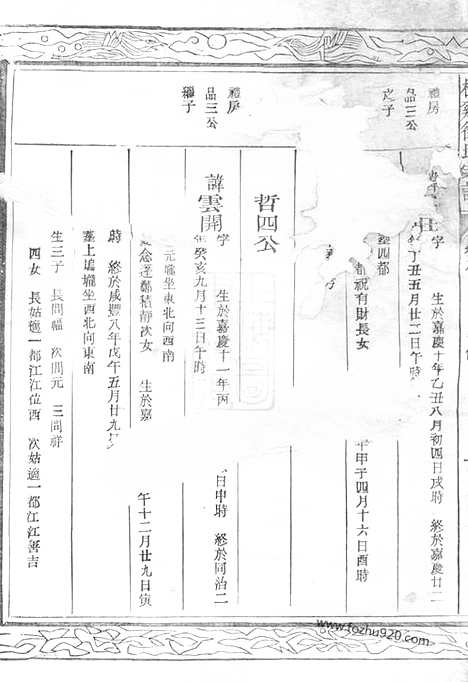 禮房
品三公
之子
字　生於嘉慶十年乙丑八月初四日戌時　終於嘉慶廿二
丁丑五月廿二日午時
四都
都祝有財長女
年甲子四月十六日酉時
禮房
品三公
繼子
哲四公
諱雲開
字　生於嘉慶十一年丙
日申時　終於同治二
癸亥九月十三日午時
元壠坐東北向西南
次女　生於嘉
午十二月廿九日寅
時　終於咸豐八年戊午五月廿九日
壠坐西北向東南
生三子　長開福　次開元　三開祥
四女　長姑適一都江江位西　次姑適一都江江善吉
www.fozhu920.com